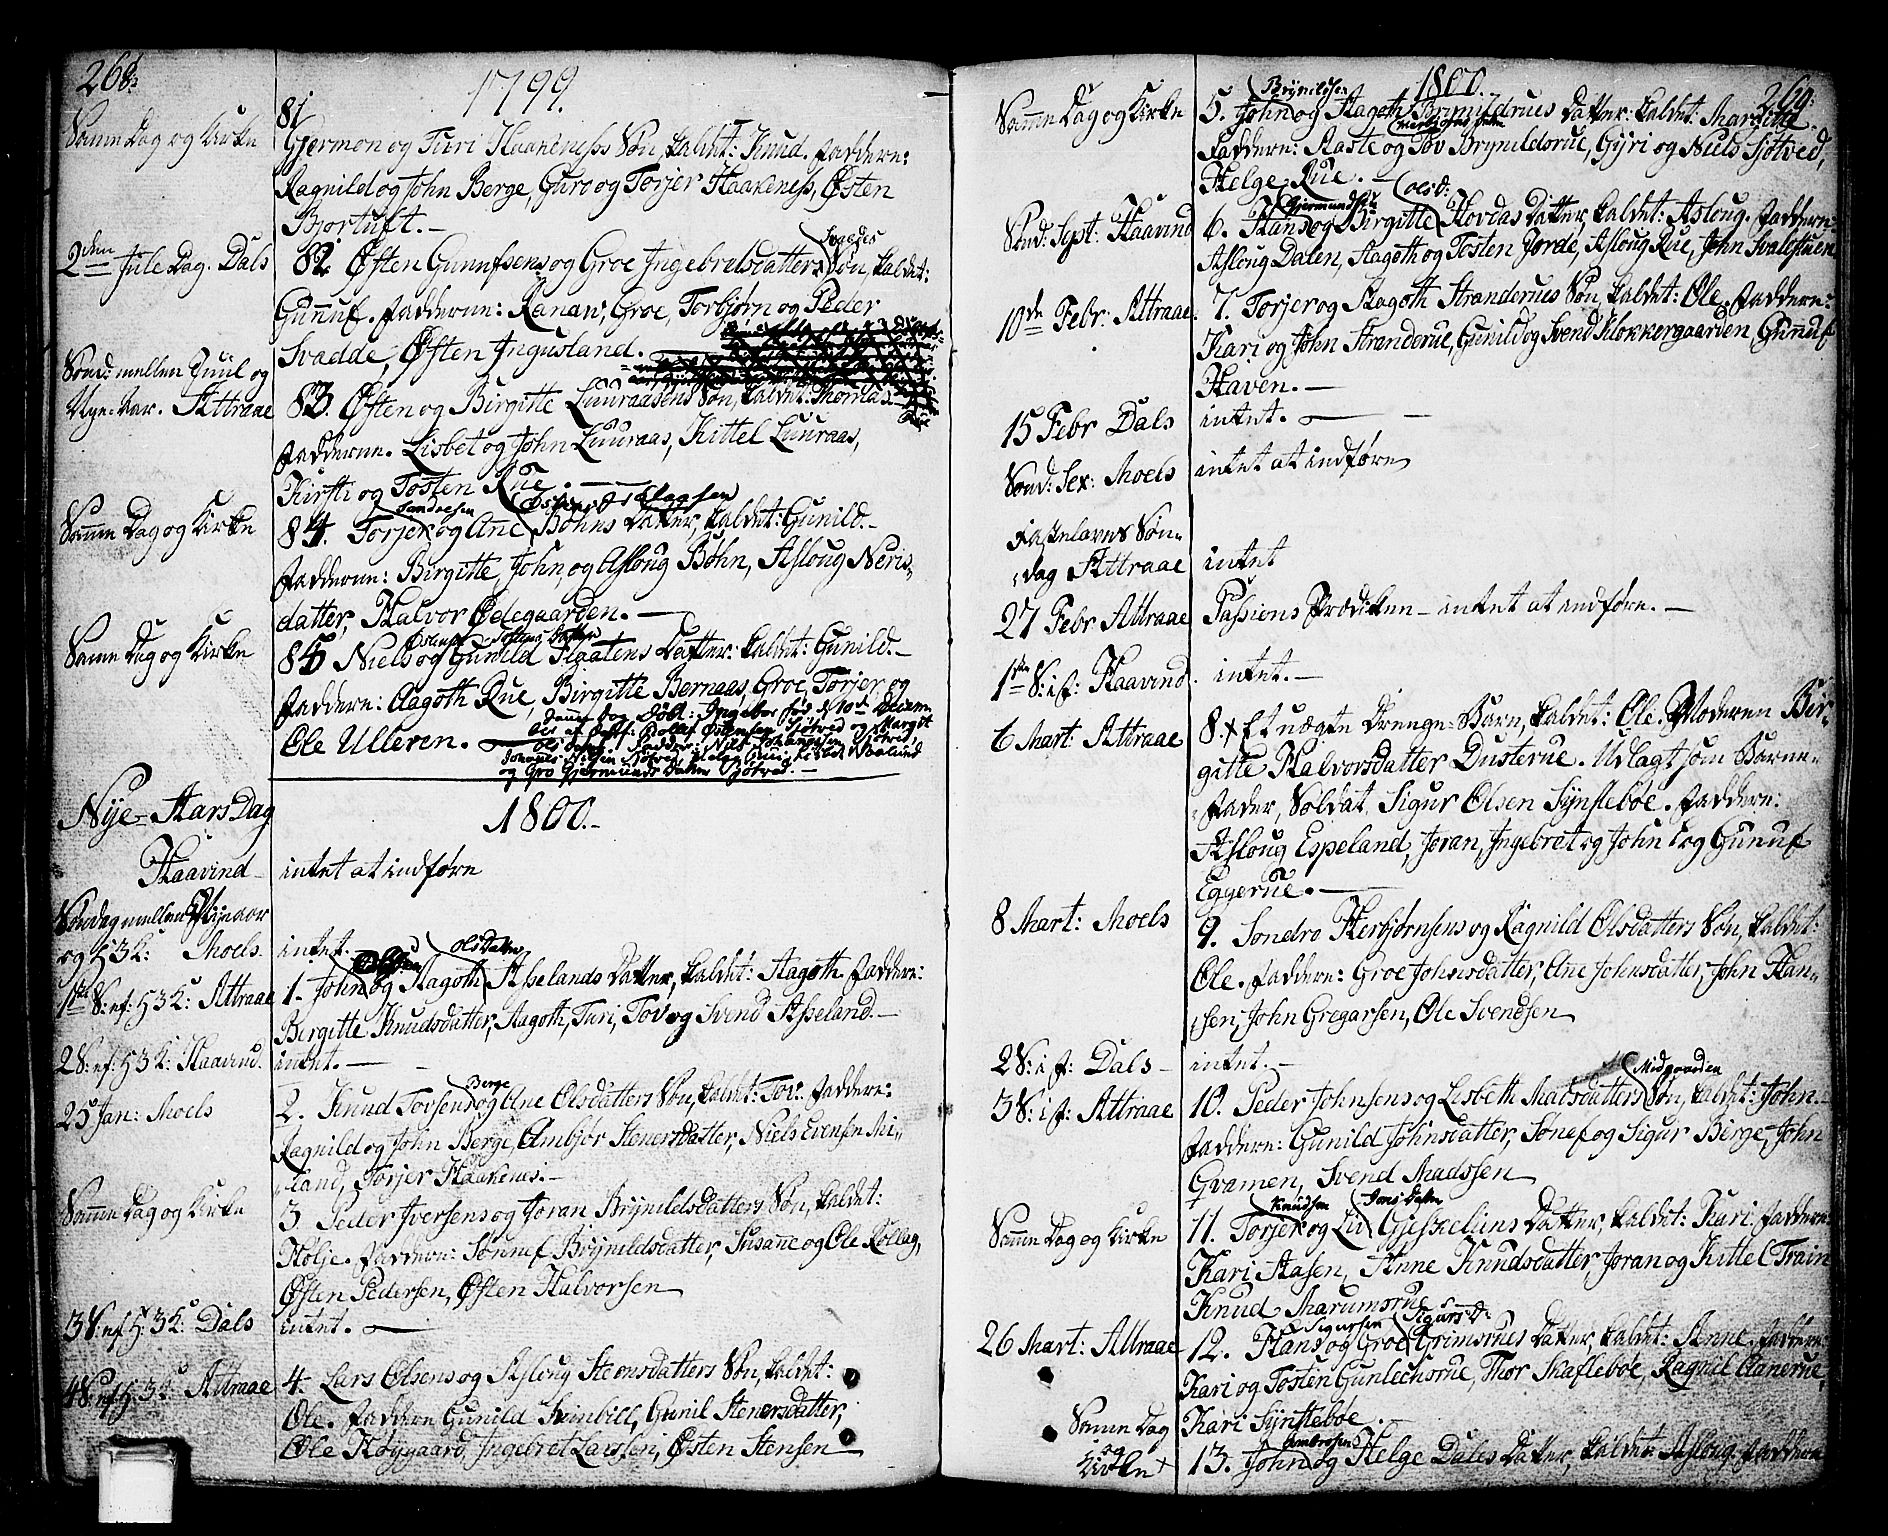 268.
1799.
Samme Dag og Kirke
81
Gjermon og Turi Haakeness Søn, kaldet: Knud. Faddere:
Ragnild og John Berge, Guro og Torjer Haakeness, Østen
Bjortuft. —
2den Jule Dag. Dals
82. Østen Gunufsens og Groe Ingebretsdatters Søn, kaldet:
Gunuf. Fadderne: Ranau, Groe, Torbjørn og Peder
Svadde, Østen Ingusland. —
Sønd: mellem Juul og
Nye-Aar. Attraae
83. Østen og Birgitte Luuraasens Søn, kaldet: Thomas
Fadderne. Lisbet og John Luuraas, Kittel Luuraas,
Kirsti og Tosten Rue. —
Samme Dag og Kirke
84. Torjer og Ane Bøhns Datter, kaldet: Gunild. —
Fadderne: Birgitte, John, og Asloug Bøhn, Asloug Neris-
datter, Halvor Ødegaarden. —
Samme Dag og Kirke
85 Niels og Gunild Flaatens Datter: kaldet: Gunild. —
Faddere: Aagoth Rue, Birgitte Bernaas, Groe, Torjer og
Ole Ulleren. —
Nye-Aars Dag
1800. —
Haavind
intet at indføre
Søndag mellem Nyeaar
og H3K: Moels.
intet.
Olsen Olsdatter
1ste S: ef: H3K: Attraae
1. John og Aagoth Asselands Datter, kaldet: Aagoth. Faddere:
Birgitte Knudsdatter, Aagoth, Turi, Tov og Svend Asseland. —
2 S: ef: H3K: Haavind.
intet. —
Berge
25 Jan: Moels
2. Knud Tovsens og Ane Olsdatters Søn, kaldet: Tov. Faddere:
Ragnild og John Berge, Ambjør Stenersdatter, Niels Evensen Mi-
land, Torjer Haakenes. —
Samme Dag og Kirke
3 Peder Iversens og Joran Brynildsdatters Søn, kaldet:
Holje. Faddere: Sønnef Brynildsdatter, Susane og Ole Rollag,
Østen Pedersen, Østen Halvorsen
3 S: ef: H3K: Dals
intet. —
4 S: ef: H3K: Attraae
4. Lars Olsens og Asloug Stensdatters Søn, kaldet:
Ole. Faddere Gunild Svinbill, Gunil Stenersdatter,
Ole Høygaard, Ingebret Larsen, Østen Stensen
1800.
269.
Brynildsen
Samme Dag og Kirke
5. John og Aagoth Brynildrues Datter: kaldet: Margitte
Faddere: Aaste og Tov Brynildsrue, Gyri og Niels Sjøtved,
Helge Rue. —
Gjermundsen Olsd:
Sønd: Sept: Haavind
6. Hans og Birgitte Hovdas Datter, kaldet: Asloug. Faddere:
Asloug Dalen, Aagoth og Tosten Jorde, Asloug Rue, John Svalestuen
10de Febr: Attraae.
7. Torjer og Aagoth Stranderues Søn, kaldet: Ole. Faddere:
Kari og John Stranderue, Gunild og Svend Klokkergaarden Gunnuf
Haven. —
15 Febr Dals
intet. —
Sønd: Sex: Moels
intet at indføre
Fastelavns Søn-
dag Attraae
intet
27 Febr Attraae
Passions Prædiken — intet at indføre. —
1ste S: i f: Haavind.
intet. —
6 Mart: Attraae
8. Et uægte Drenge-Barn, kaldet: Ole. Moderen Bir-
gitte Halvorsdatter Dusterue. Udlagt som Barne-
Fader, Soldat Sigur Olsen Synsteboe. Faddere:
Asloug Espeland, Joran, Ingebret og John og Gunuf
Eggerue. —
8 Mart: Moels
9. Sondro Herbjørnsens og Ragnild Olsdatters Søn, kaldet:
Ole. Faddere: Groe Johnsdatter, Ane Johnsdatter, John Han-
sen, John Gregarsen, Ole Svendsen
2 S: i f: Dals
intet. —
Midgaarden
3 S: i f: Attraae
10. Peder Johnsens og Lisbeth Madsdatters Søn, kaldet: John.
Faddere: Gunild Johnsdatter, Sønef og Sigur Berge, John
Gvamen, Svend Madssen
Knudsen
Samme Dag og Kirke
11. Torjer og Liv Gjesseliens Datter, kaldet: Kari. Faddere:
Kari Aasen, Anne Knudsdatter, Joran og Kittel Train
Knud Marumsrue —
Sigursen Sigursd:
26 Mart: Attraae
12. Hans og Groe Grimsrues Datter, kaldet: Anne. Faddere:
Kari og Tosten Gunlechsrue, Thor Skafleboe, Ragnil
Kari Synsteboe.
Samme Dag
og
Kirke
Ambrosens
13. John og Helge Dales Datter, kaldet: Asloug. Faddere